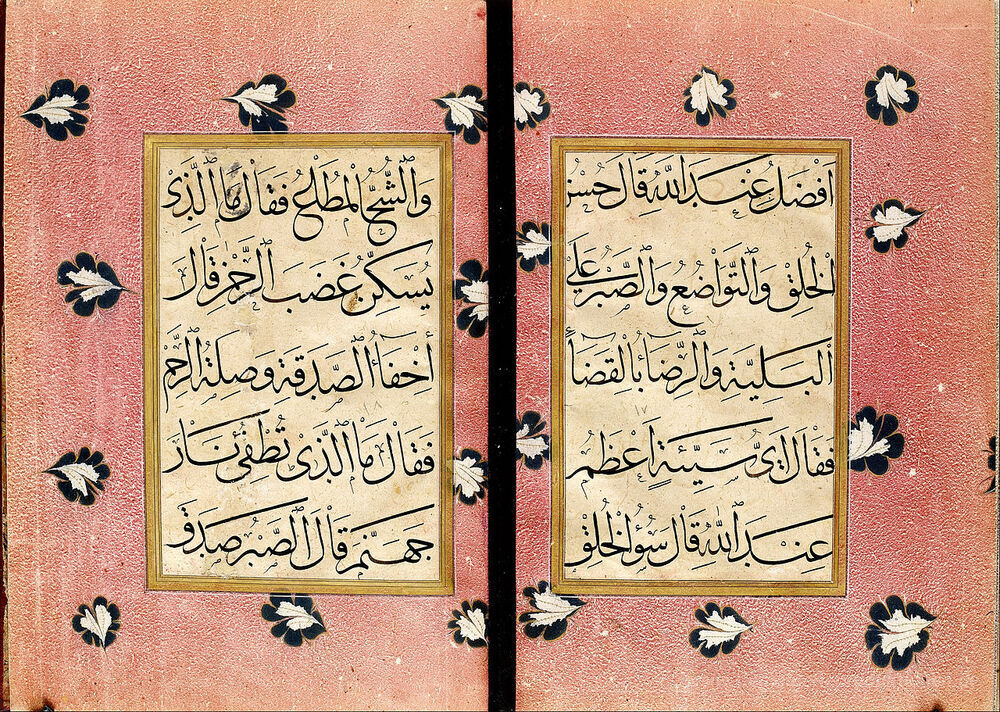 افضل عند الله قال حسن
الخلق والتواضع والصبر على
البلية والرضا بالقضاء
١٧
فقال اى سيئة اعظم
عند الله قال سوء الخلق
والشح المطاع فقال ما الذى
يسكن غضب الرحمن قال
أخفاء الصدقة وصلة الرحم
١٨
فقال ما الذى تطفئ نار
جهنم قال الصبر صدق